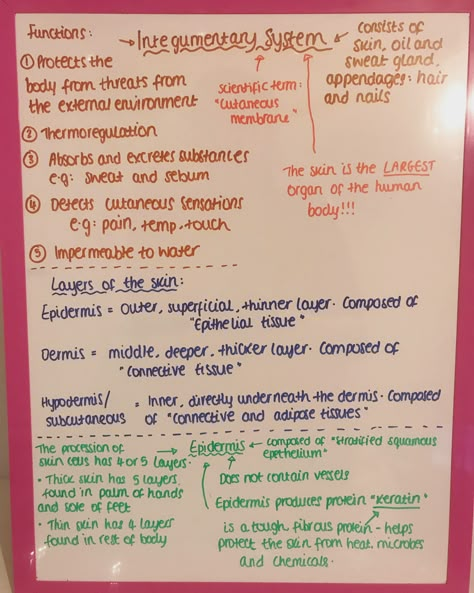 Functions:
→ Integumentary System ←
consists of
skin, oil and
sweat gland,
appendages: hair
and nails
① Protects the
body from threats from
the external environment
scientific term:
"cutaneous
membrane"
② Thermoregulation
③ Absorbs and excretes substances
e.g: sweat and sebum
The skin is the LARGEST
organ of the human
body!!!
④ Detects cutaneous sensations
e.g: pain, temp, touch
⑤ Impermeable to water
Layers of the skin:
Epidermis = outer, superficial, thinner layer. Composed of
"Epithelial tissue"
Dermis = middle, deeper, thicker layer. Composed of
"connective tissue"
Hypodermis/
subcutaneous
= Inner, directly underneath the dermis. Composed
of "connective and adipose tissues"
The procession of
skin cells has 4 or 5 layers.
• Thick skin has 5 layers,
found in palm of hands
and sole of feet
• Thin skin has 4 layers
found in rest of body
→ Epidermis ← composed of "stratified squamous
epethelium"
Does not contain vessels
Epidermis produces protein "Keratin"
is a tough fibrous protein - helps
protect the skin from heat, microbes
and chemicals.